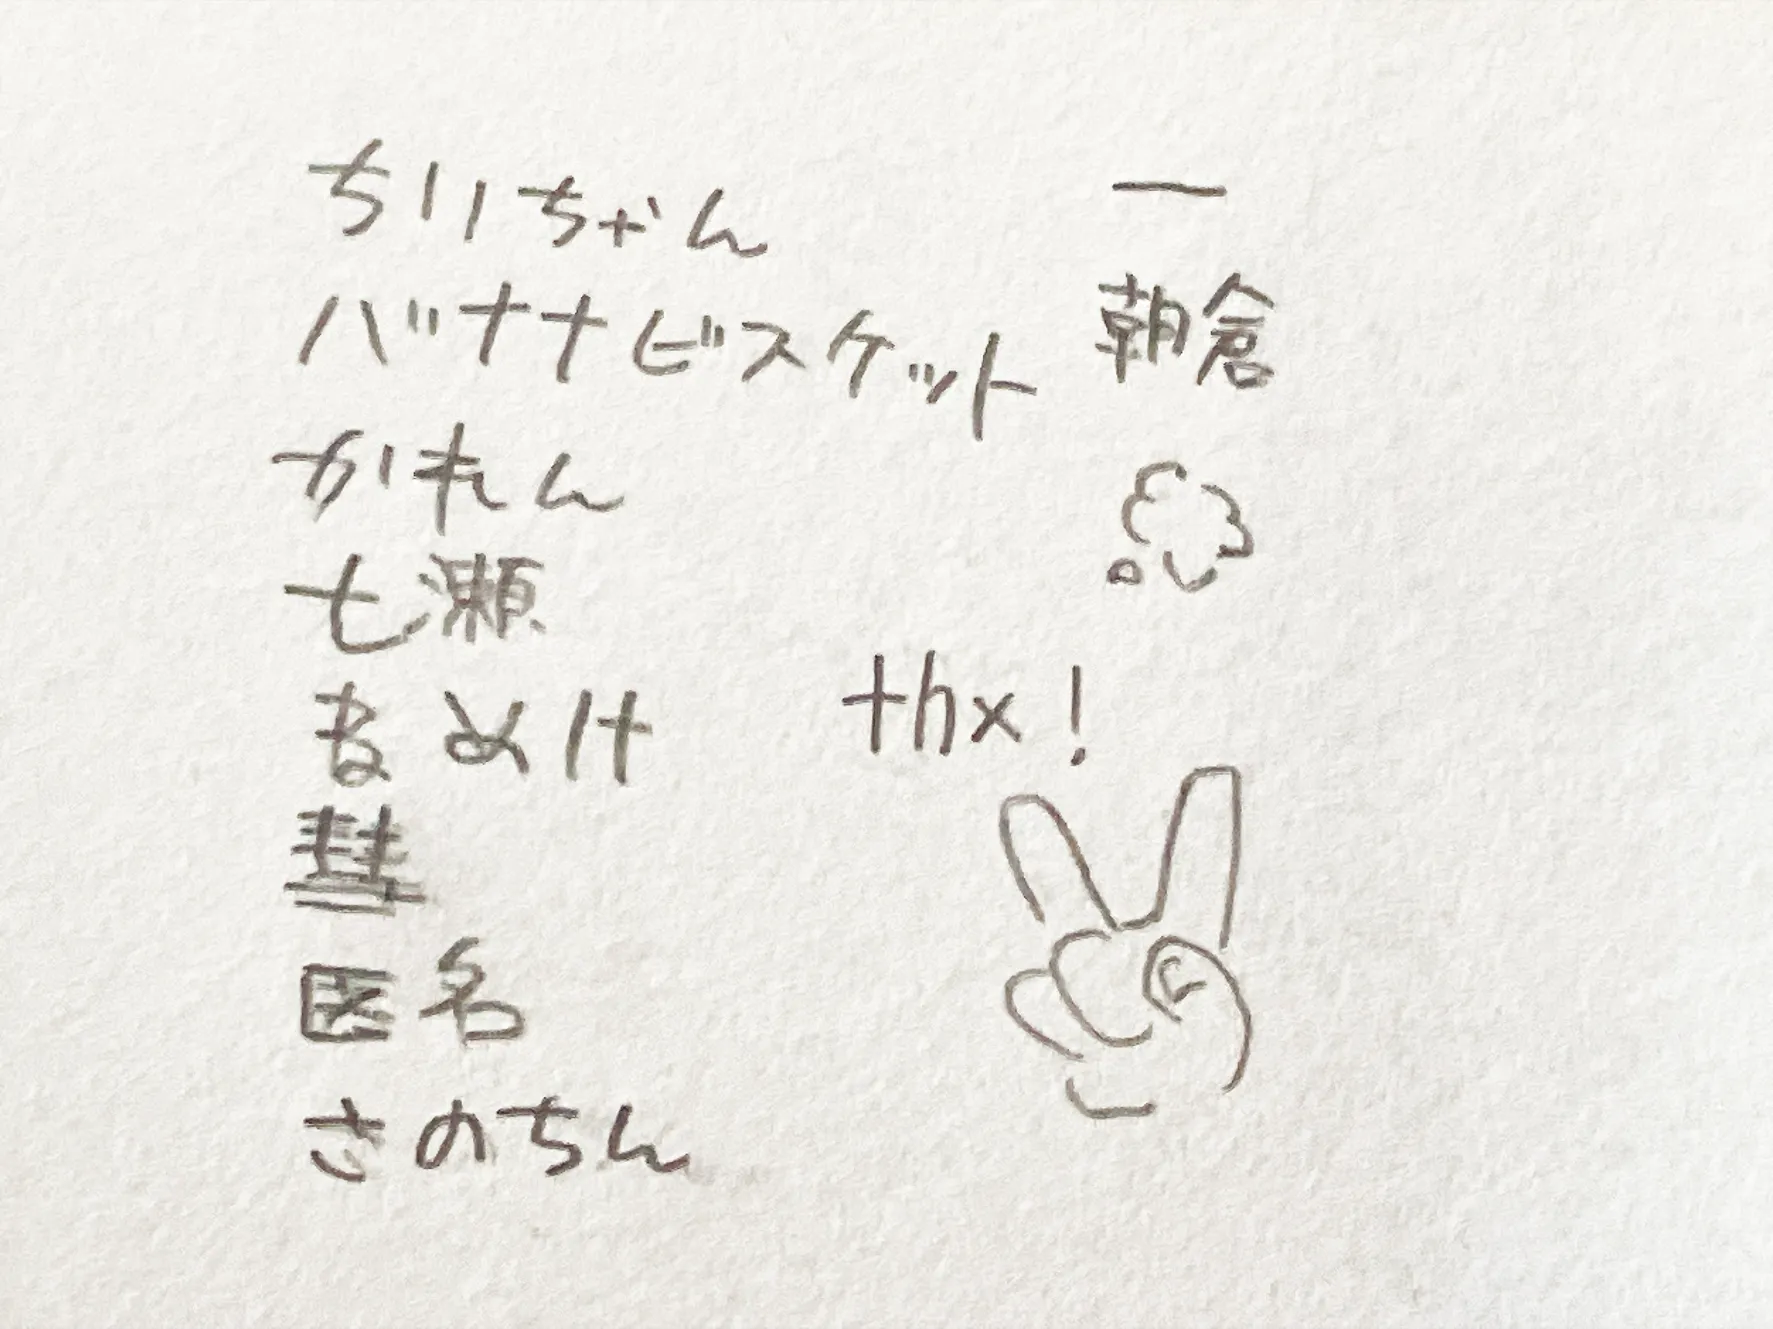 ちいちゃん
一
バナナビスケット
朝倉
かれん
七瀬
まめけ
thx!
彗
匿名
さのちん